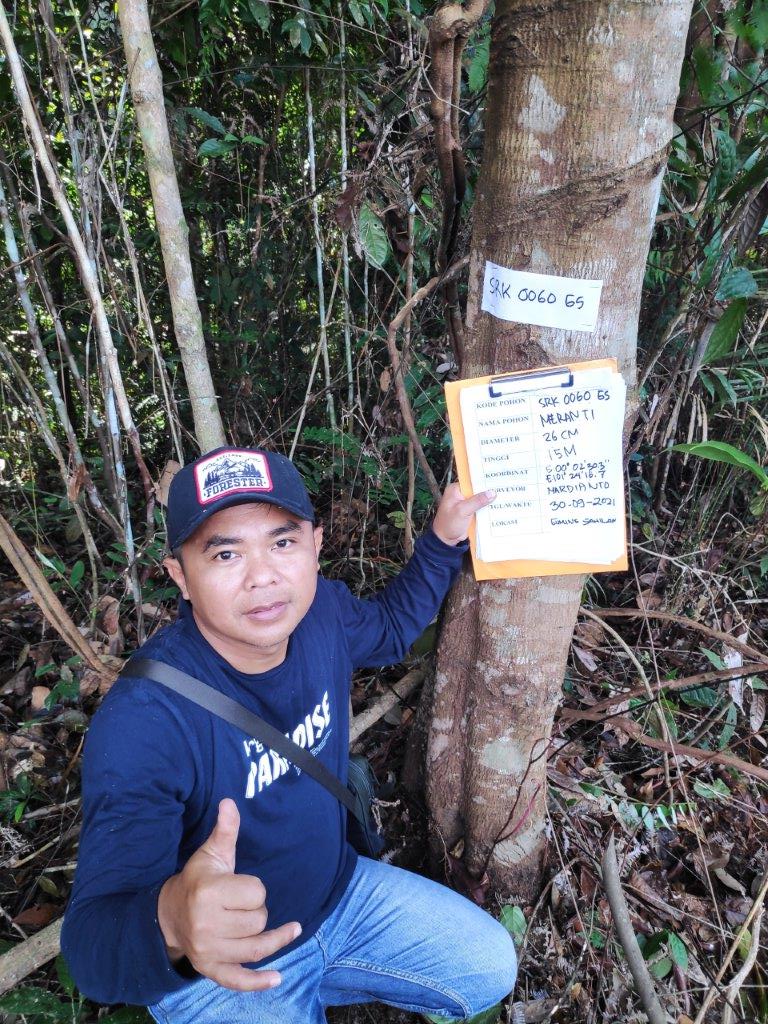 SRK 0060 ES
KODE POHON SRK 0060 ES
NAMA POHON MERANTI
DIAMETER 26 CM
TINGGI 15 M
KOORDINAT S 00° 02' 30.3"
E101° 24' 16.7"
SURVEYOR MARDIANTO
TGL/WAKTU 30-09-2021
LOKASI GUNUNG SAHILAN
FORESTER
PARADISE